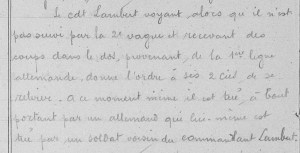 Le cdt Lambert voyant, alors qu'il n'est
pas suivi par la 2e vague et recevant des
coups dans le dos, provenant, de la 1ère ligne
allemande, donne l'ordre à ses 2 Cies de se
retirer. A ce moment même il est tué, à bout
portant par un allemand qui lui-même est
tué par un soldat voisin du commandant Lambert.